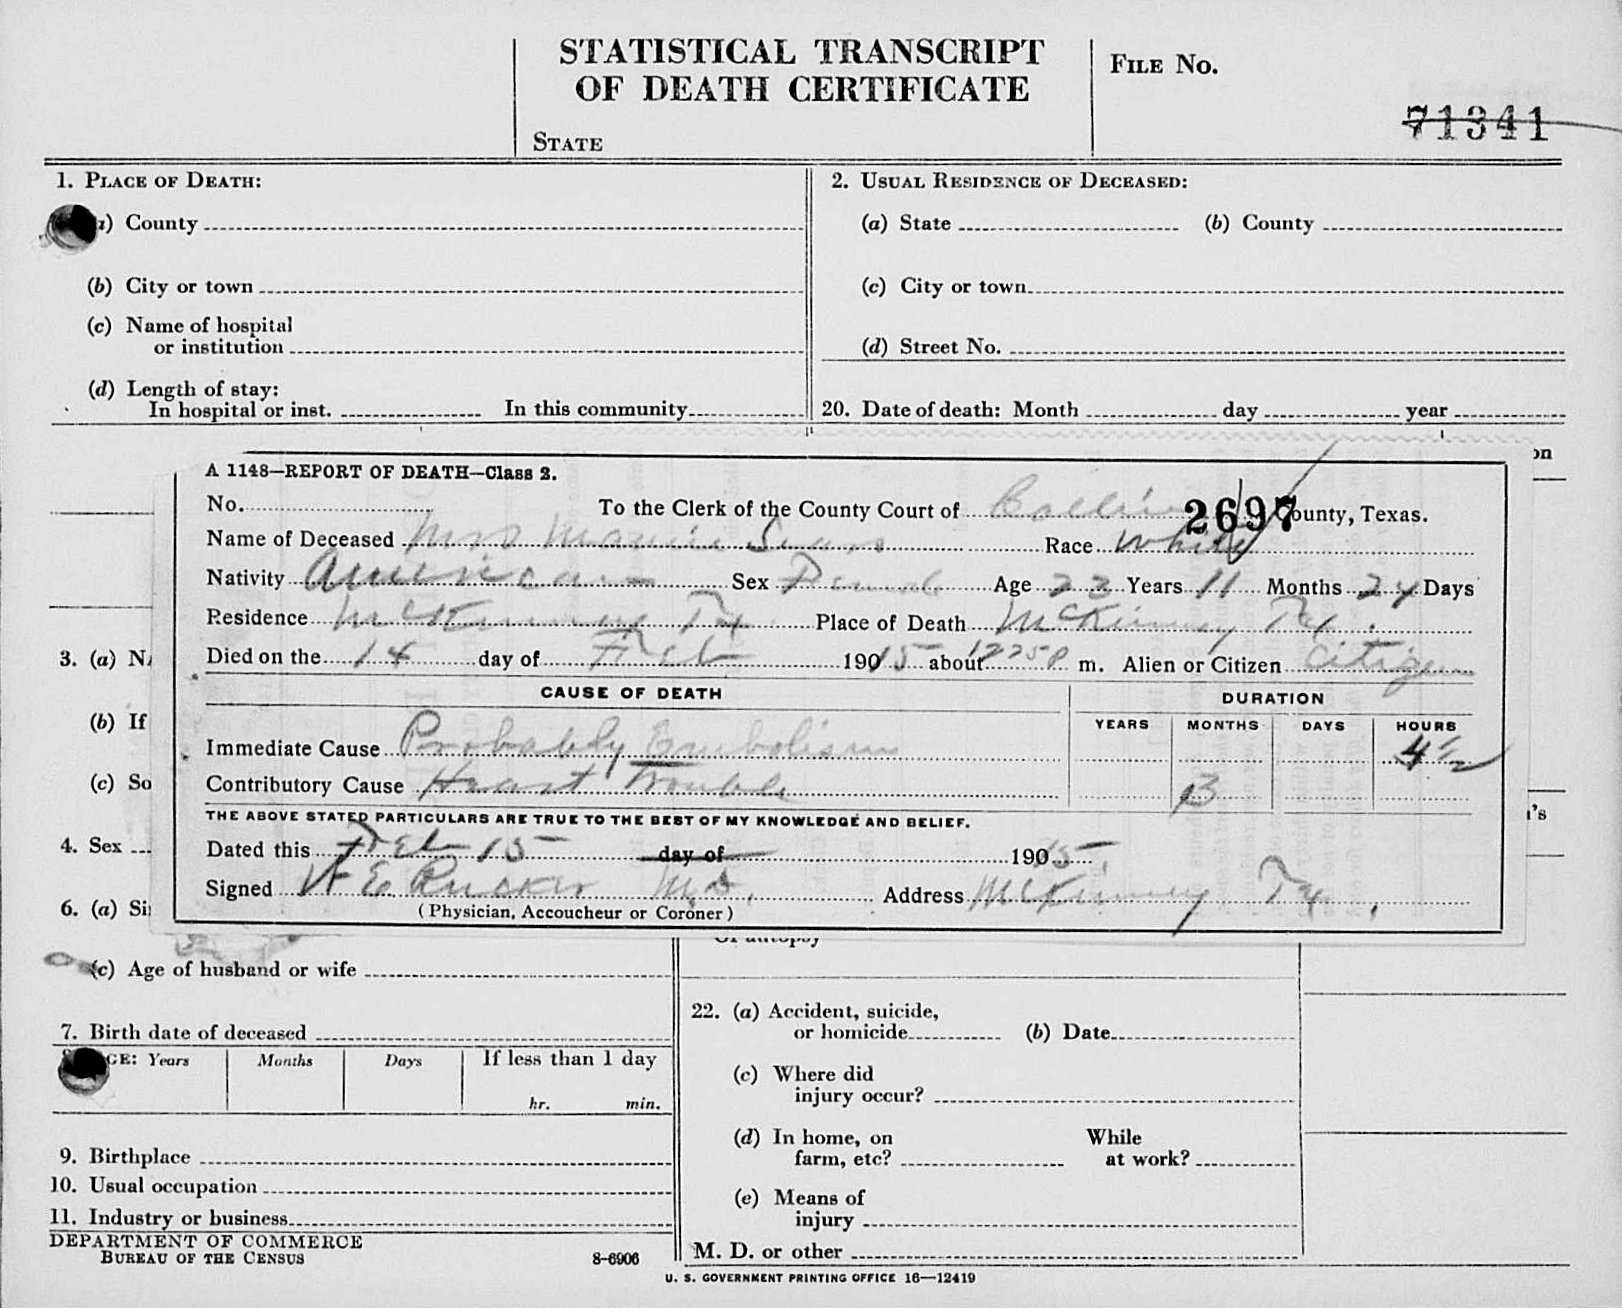 STATISTICAL TRANSCRIPT
OF DEATH CERTIFICATE
STATE
FILE No.
71341
1. PLACE OF DEATH:
(a) County
(b) City or town
(c) Name of hospital
or institution
(d) Length of stay:
In hospital or inst. In this community
2. USUAL RESIDENCE OF DECEASED:
(a) State (b) County
(c) City or town
(d) Street No.
20. Date of death: Month day year
on
A 1148—REPORT OF DEATH—Class 2.
No. To the Clerk of the County Court of Collin 2697 County, Texas.
Name of Deceased Mrs Sears Race White
Nativity American Sex Female Age 23 Years 11 Months 24 Days
Residence McKinney Tx Place of Death McKinney Tx.
Died on the 14 day of Feb 1915 about 1225 P m. Alien or Citizen Citizen
CAUSE OF DEATH DURATION
YEARS MONTHS DAYS HOURS
Immediate Cause Probably Embolism 4 1/2
Contributory Cause Heart Trouble 3
THE ABOVE STATED PARTICULARS ARE TRUE TO THE BEST OF MY KNOWLEDGE AND BELIEF.
Dated this Feb 15 day of 1915.
Signed W E Rucker M.D. Address McKinney, Tx.
(Physician, Accoucheur or Coroner)
3. (a) NA
(b) If
(c) So
4. Sex
6. (a) Si
n's
Of autopsy
(c) Age of husband or wife
7. Birth date of deceased
8. AGE: Years Months Days If less than 1 day
hr. min.
9. Birthplace
10. Usual occupation
11. Industry or business
DEPARTMENT OF COMMERCE
BUREAU OF THE CENSUS 8-6906
22. (a) Accident, suicide,
or homicide (b) Date
(c) Where did
injury occur?
(d) In home, on While
farm, etc? at work?
(e) Means of
injury
M. D. or other
U. S. GOVERNMENT PRINTING OFFICE 16—12419